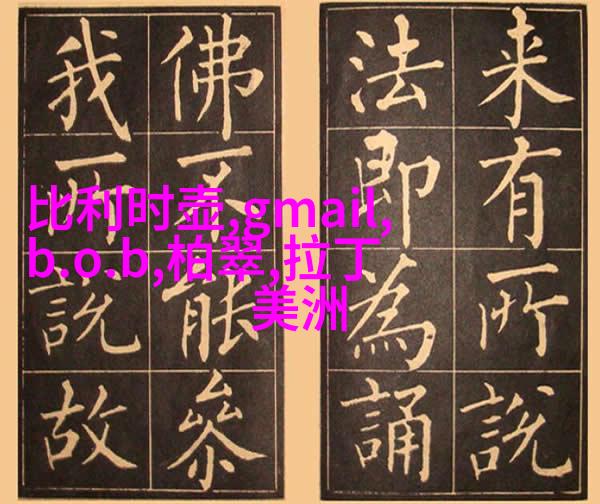 来有所說
法即為誦
佛不能叅
我所說故
比利时壶,gmail,
b.o.b,柏翠,拉丁
美洲